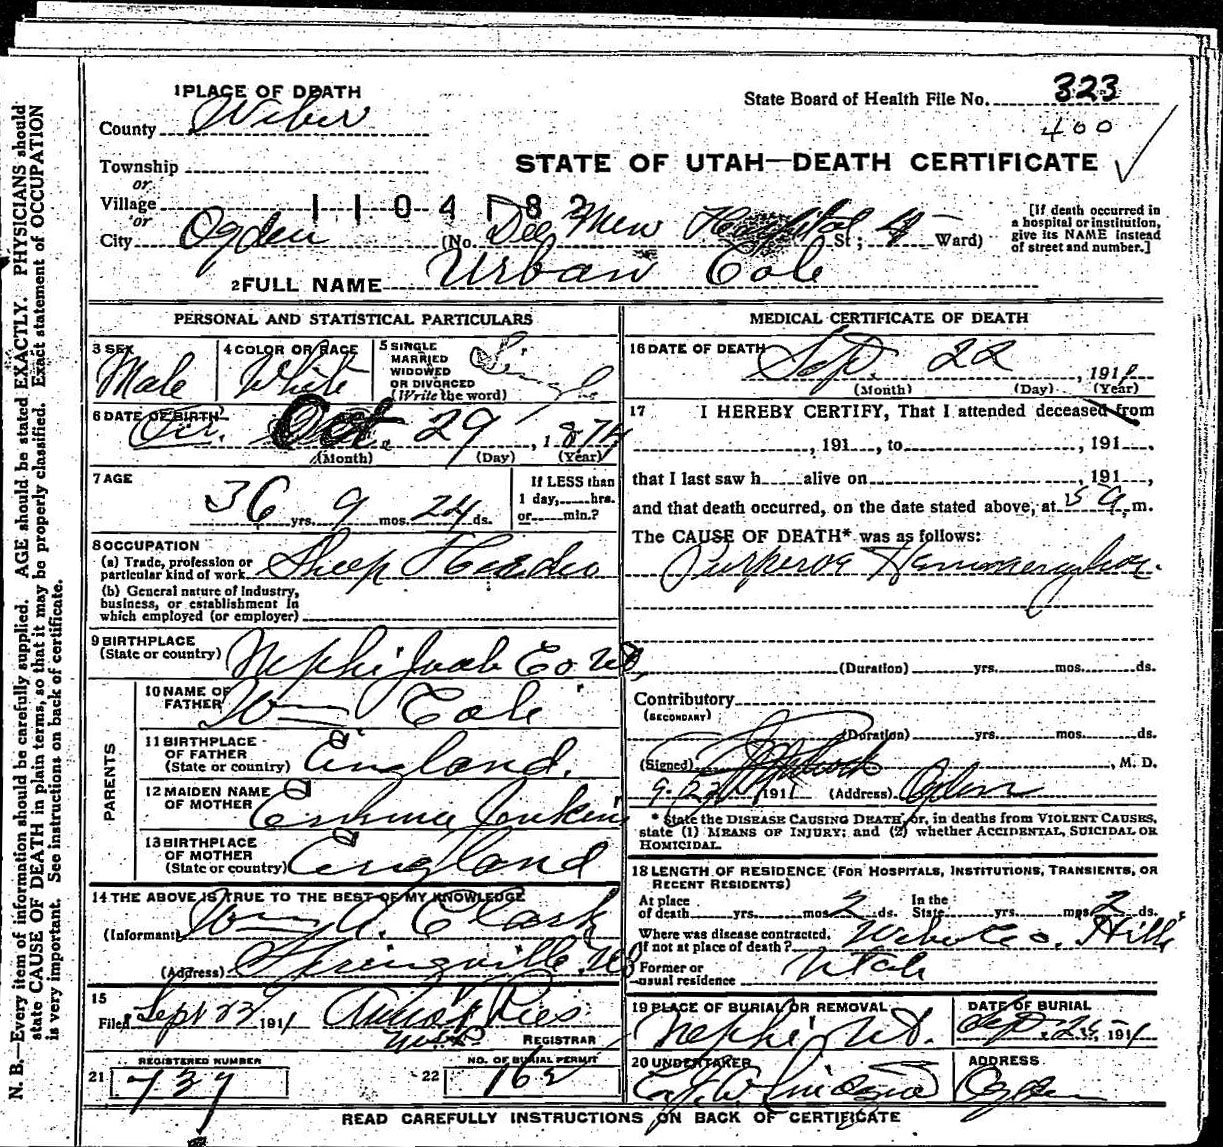 1 PLACE OF DEATH
County Weber
State Board of Health File No. 323
400
Township
or
Village
or
1104182
STATE OF UTAH—DEATH CERTIFICATE
City Ogden (No. Dee Mem Hospital St; 4 Ward)
[If death occurred in a hospital or institution, give its NAME instead of street and number.]
2 FULL NAME Urban Cole
PERSONAL AND STATISTICAL PARTICULARS
3 SEX Male
4 COLOR OR RACE White
5 SINGLE MARRIED WIDOWED OR DIVORCED (Write the word) Single
6 DATE OF BIRTH Oct. 29, 1874
(Month) (Day) (Year)
7 AGE
36 yrs. 9 mos. 24 ds.
If LESS than 1 day,....hrs. or....min.?
8 OCCUPATION
(a) Trade, profession or particular kind of work Sheep Herder
(b) General nature of Industry, business, or establishment in which employed (or employer)
9 BIRTHPLACE (State or country) Nephi Juab Co Ut,
PARENTS
10 NAME OF FATHER Wm Cole
11 BIRTHPLACE OF FATHER (State or country) England.
12 MAIDEN NAME OF MOTHER Emma Jenkins
13 BIRTHPLACE OF MOTHER (State or country) England
14 THE ABOVE IS TRUE TO THE BEST OF MY KNOWLEDGE
(Informant) Wm A. Clark
(Address) Springville Ut
15
Filed Sept 23 1911
REGISTRAR
REGISTERED NUMBER
21 737
NO. OF BURIAL PERMIT
22 162
MEDICAL CERTIFICATE OF DEATH
16 DATE OF DEATH Sep. 22, 1911
(Month) (Day) (Year)
17 I HEREBY CERTIFY, That I attended deceased from
, 191 , to , 191 ,
that I last saw h alive on , 191 ,
and that death occurred, on the date stated above, at 5 a. m.
The CAUSE OF DEATH* was as follows:
(Duration) yrs. mos. ds.
Contributory
(SECONDARY)
(Duration) yrs. mos. ds.
(Signed) , M. D.
9-22 1911 (Address) Ogden
* State the DISEASE CAUSING DEATH, or, in deaths from VIOLENT CAUSES,
state (1) MEANS OF INJURY; and (2) whether ACCIDENTAL, SUICIDAL OR
HOMICIDAL.
18 LENGTH OF RESIDENCE (FOR HOSPITALS, INSTITUTIONS, TRANSIENTS, OR
RECENT RESIDENTS)
At place of death yrs. mos. 2 ds. In the State yrs. mos. 2 ds.
Where was disease contracted, if not at place of death? Weber Co. Hills
Former or usual residence Utah
19 PLACE OF BURIAL OR REMOVAL Nephi Ut.
DATE OF BURIAL Sep. 25, 1911
20 UNDERTAKER
ADDRESS Ogden
READ CAREFULLY INSTRUCTIONS ON BACK OF CERTIFICATE
N. B.—Every item of information should be carefully supplied. AGE should be stated EXACTLY. PHYSICIANS should
state CAUSE OF DEATH in plain terms, so that it may be properly classified. Exact statement of OCCUPATION
is very important. See instructions on back of certificate.